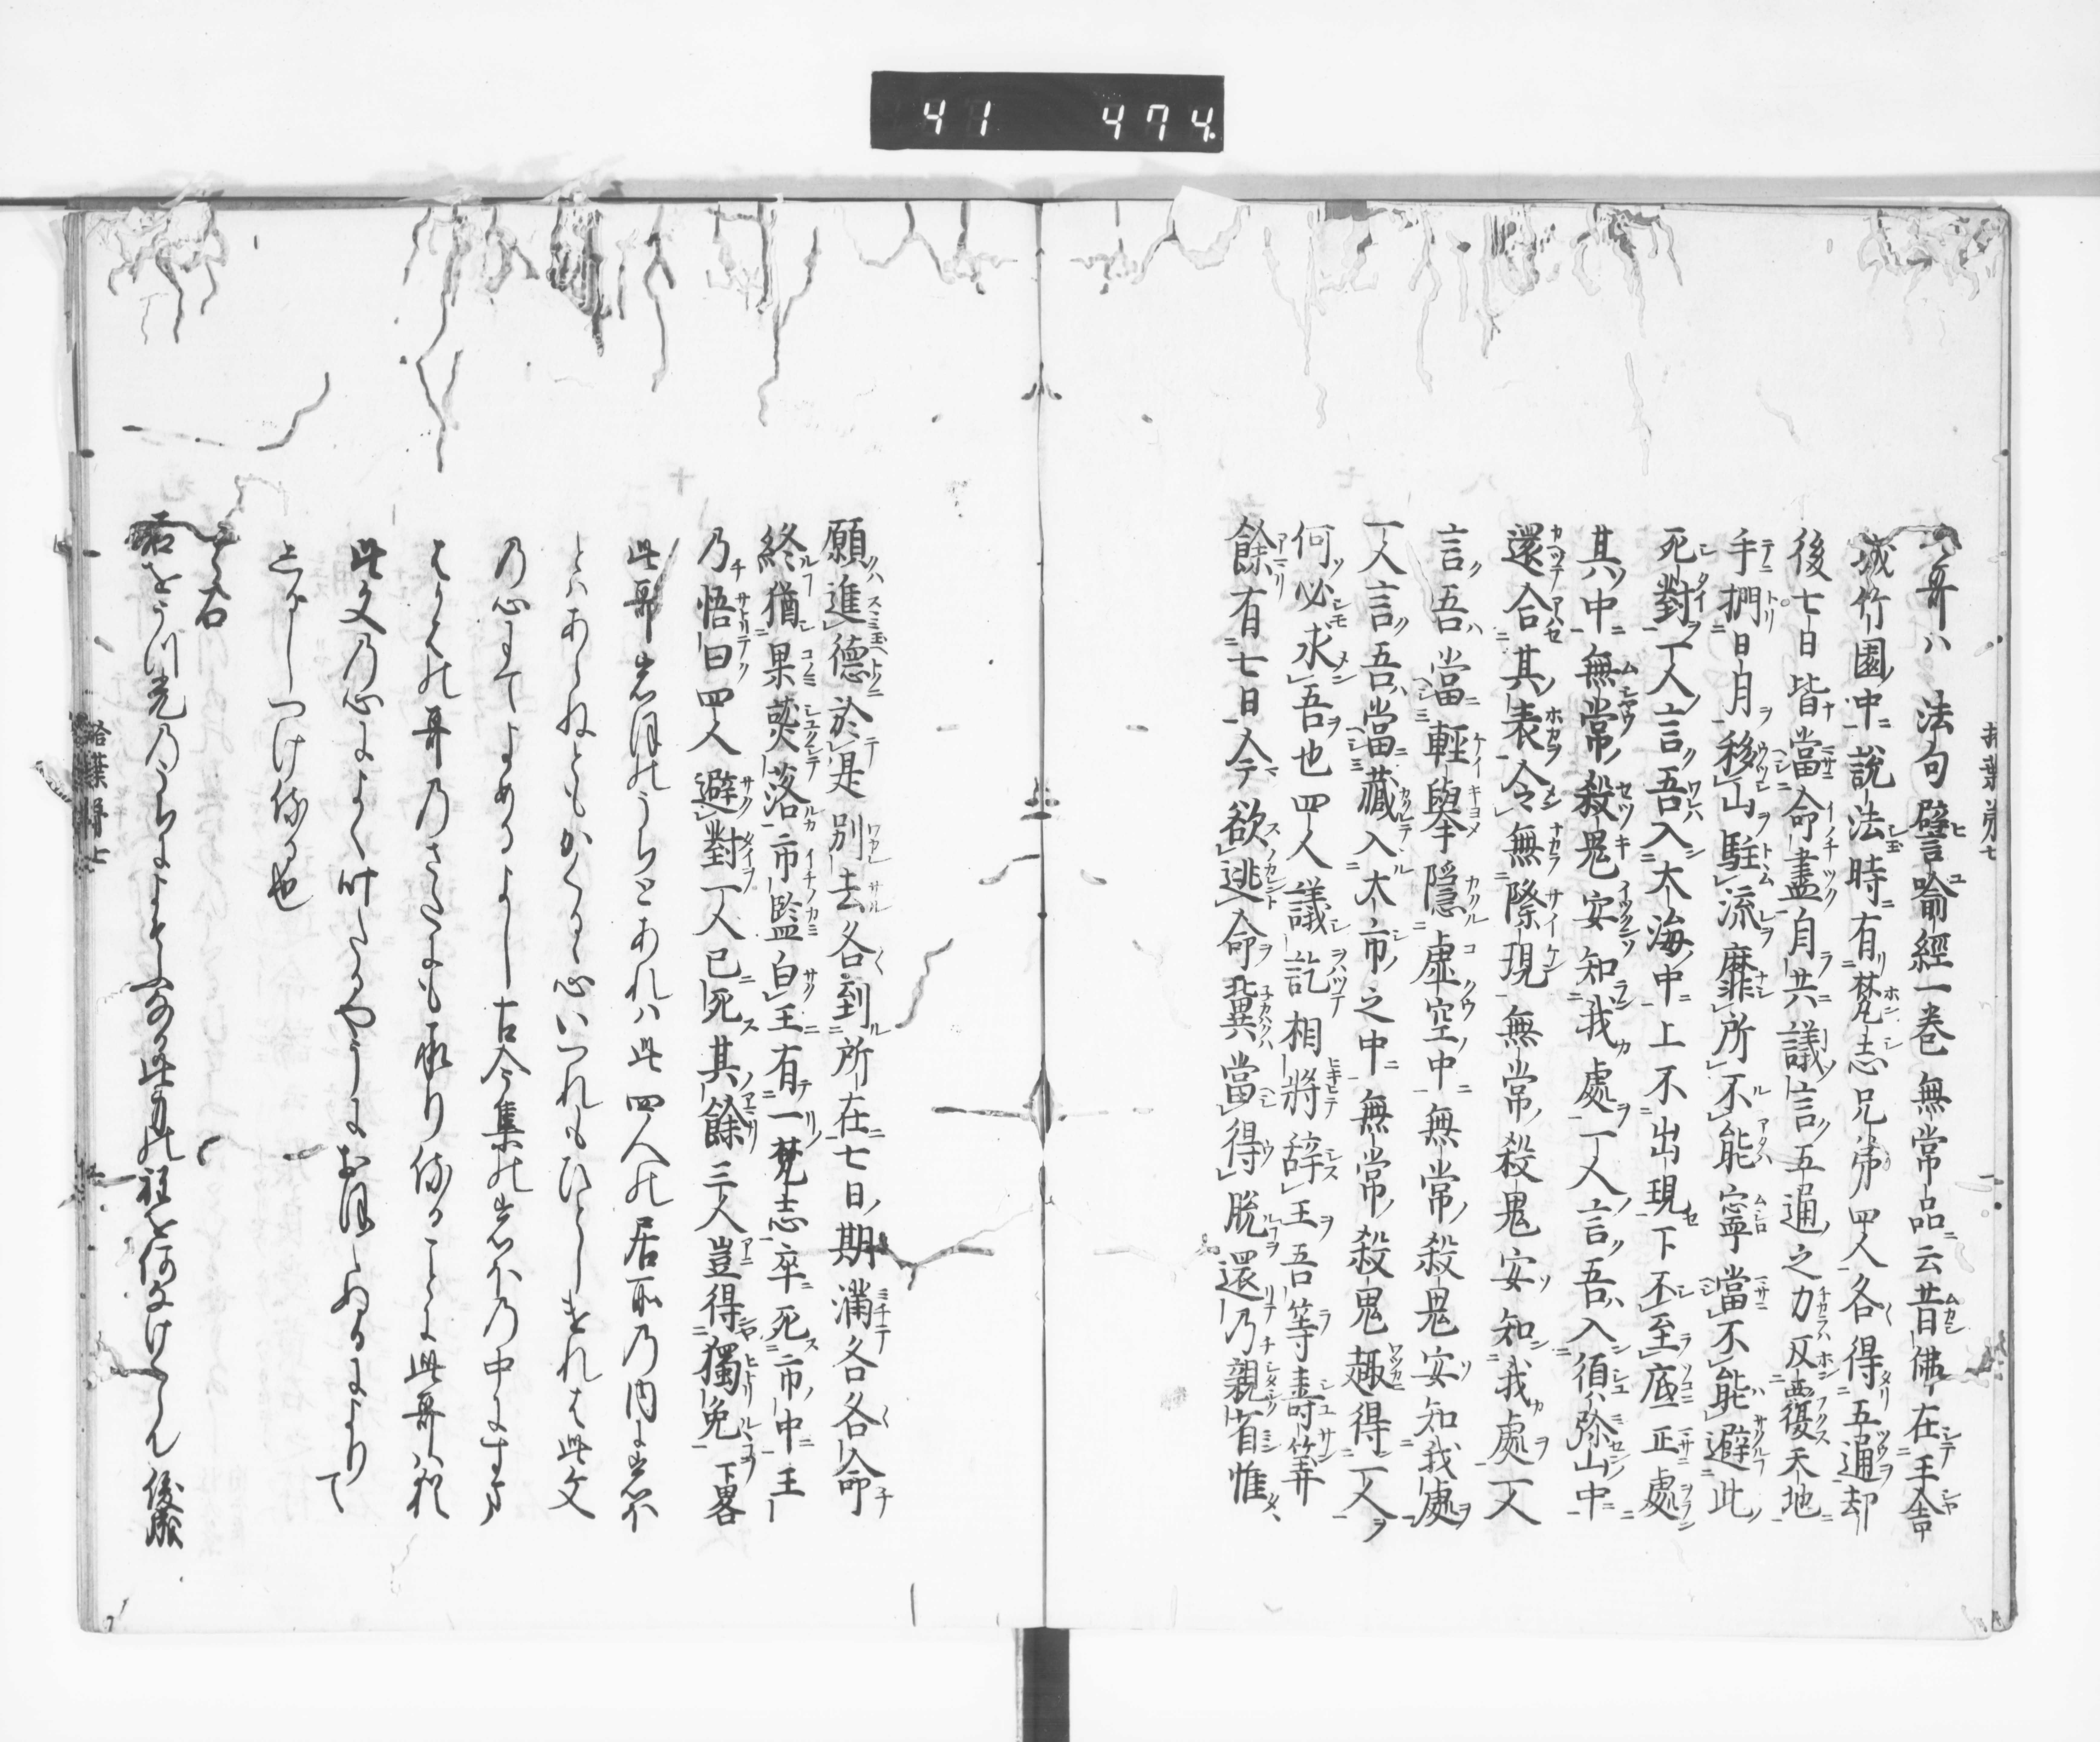 41 474.
拾葉第七
此哥ハ 法句譬喩經一巻無常品云昔佛在王舎
城竹園中説法時有梵志兄弟四人各得五通却
後七日皆當命盡自共議言五通之力反覆天地
手捫日月移山駐流靡所不能寧當不能避此
死對一人言吾入大海中上不出現下不至底正處
其中無常殺鬼安知我處一人言吾入須弥山中
還合其表令無際現無常殺鬼安知我處一人
言吾當輕擧隠虚空中無常殺鬼安知我處
一人言吾當藏入大市之中無常殺鬼趣得一人
何必求吾也四人議訖相將辞王吾等壽筭
餘有七日今欲逃命冀當得脱還乃親省惟
願進德於是別去各到所在七日期満各各命
終猶果熟落市監白王有一梵志卒死市中王
乃悟曰四人避對一人已死其餘三人豈得獨免 下畧
此哥岩ほのうちとあれハ此四人の居所の内に岩ほ
とハあらねともかくるゝ心いつれもひとしけれは此文
の心にてよめるよし古今集の岩ほの中にすま
はかはの哥のさたにも承り侍ることに此哥ハ殊
此文の心によく叶たるやうにおほしぬるによりて
しるしつけ侍る也
拾葉将七